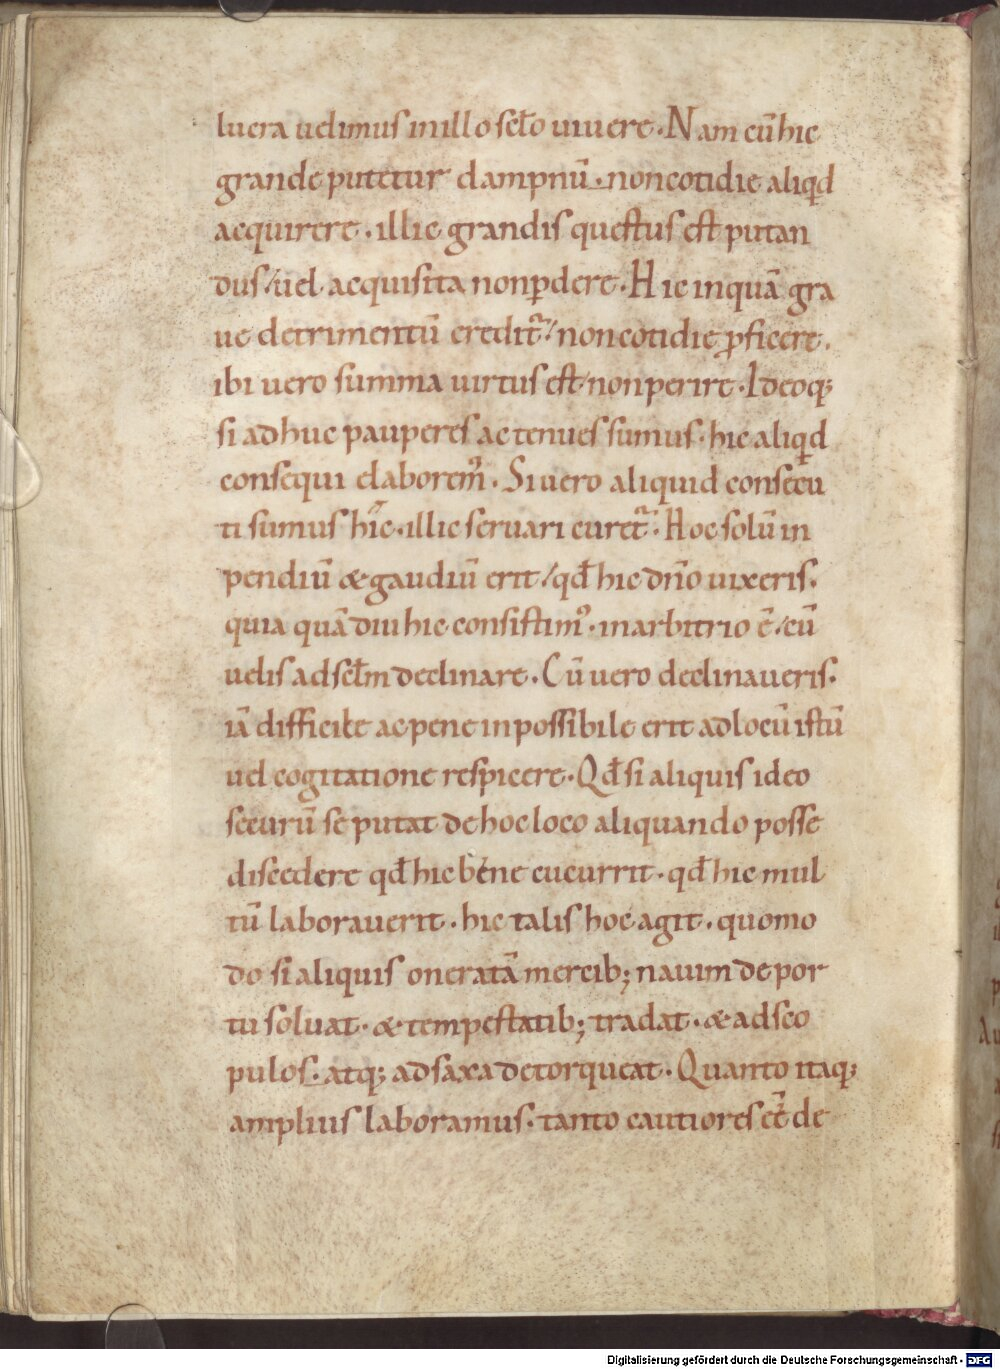 lucra uelimus in illo sc̅lo uiuere · Nam cū hic
grande putetur dampnū · non cotidie aliqd
acquirere · illic grandis questus est putan
dus / uel acquisita non ꝑdere · Hic inquā gra
ue detrimentū credit᷑ / non cotidie ꝓficere ·
ibi uero summa uirtus est / non perire · Ideoq;
si adhuc pauperes ac tenues sumus · hic aliqd
consequi elaborem᷒ · Si uero aliquid consecu
ti sumus hic · illic seruari curet᷑ · Hoc solū in
pendiū & gaudiū erit / qđ hic dn̄o uixeris ·
quia quādiu hic consistim᷒ · in arbitrio ē / cū
uelis ad sc̅lm declinare · Cū uero declinaueris ·
iā difficile ac pene inpossibile erit ad locū istū
uel cogitatione respicere · Qđ si aliquis ideo
securū se putat de hoc loco aliquando posse
discedere qđ hic bene cucurrit · qđ hic mul
tū laborauerit · hic talis hoc agit · quomo
do si aliquis oneratā mercib; nauim de por
tu soluat · & tempestatib; tradat · & ad sco
pulos · atq; ad saxa detorqueat · Quanto itaq;
amplius laboramus · tanto cautiores et᷑ de
Digitalisierung gefördert durch die Deutsche Forschungsgemeinschaft - DFG